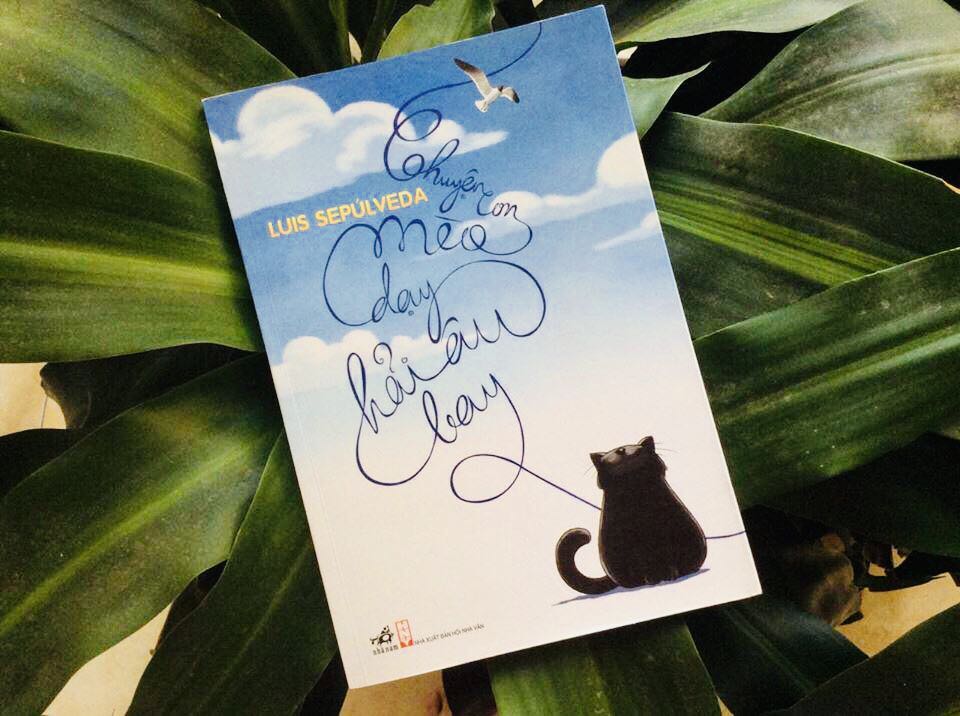 Chuyện con
LUIS SEPÚLVEDA
mèo
dạy
hải âu
bay
nhã nam
NHÀ XUẤT BẢN HỘI NHÀ VĂN